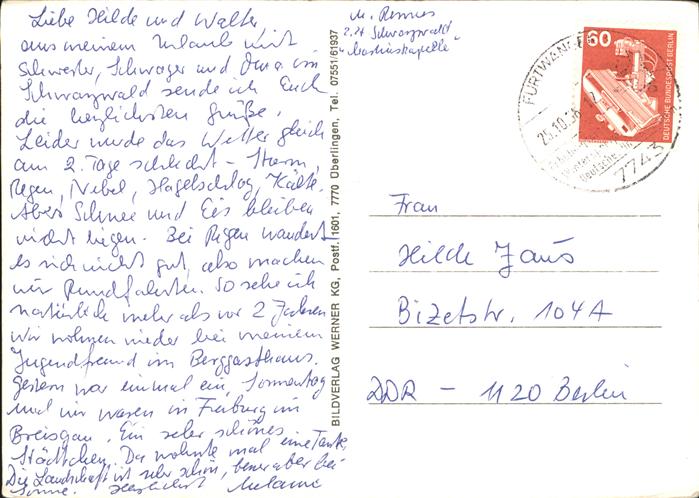 Liebe Hilde und Walter
aus meinem Urlaub mit
Schwester, Schwager und Oma im
Schwarzwald sende ich Euch
die herzlichsten Grüße.
Leider wurde das Wetter gleich
am 2. Tage schlecht – Sturm,
Regen, Nebel, Hagelschlag, Kälte.
Aber Schnee und Eis bleiben
nicht liegen. Bei Regen wandert
es sich nicht gut, also machen
wir Rundfahrten. So sehe ich
natürlich mehr als vor 2 Jahren
wir wohnen wieder bei meinem
Jugendfreund im Berggasthaus.
Gestern war einmal ein Sonnentag
und wir waren in Freiburg im
Breisgau. Ein sehr schönes
Städtchen. Da wohnte mal eine Tante.
Die Landschaft ist sehr schön, besser aber bei
Sonne. Herzlichst Melanie
BILDVERLAG WERNER KG, Postf. 1601, 7770 Überlingen, Tel. 07551/61937
M.
z. Zt Schwarzwald
"Martinskapelle"
FURTWANGEN
25.10.
7743
60
DEUTSCHE BUNDESPOST BERLIN
Frau
Hilde Jaus
Bizetstr. 104A
DDR – 1120 Berlin